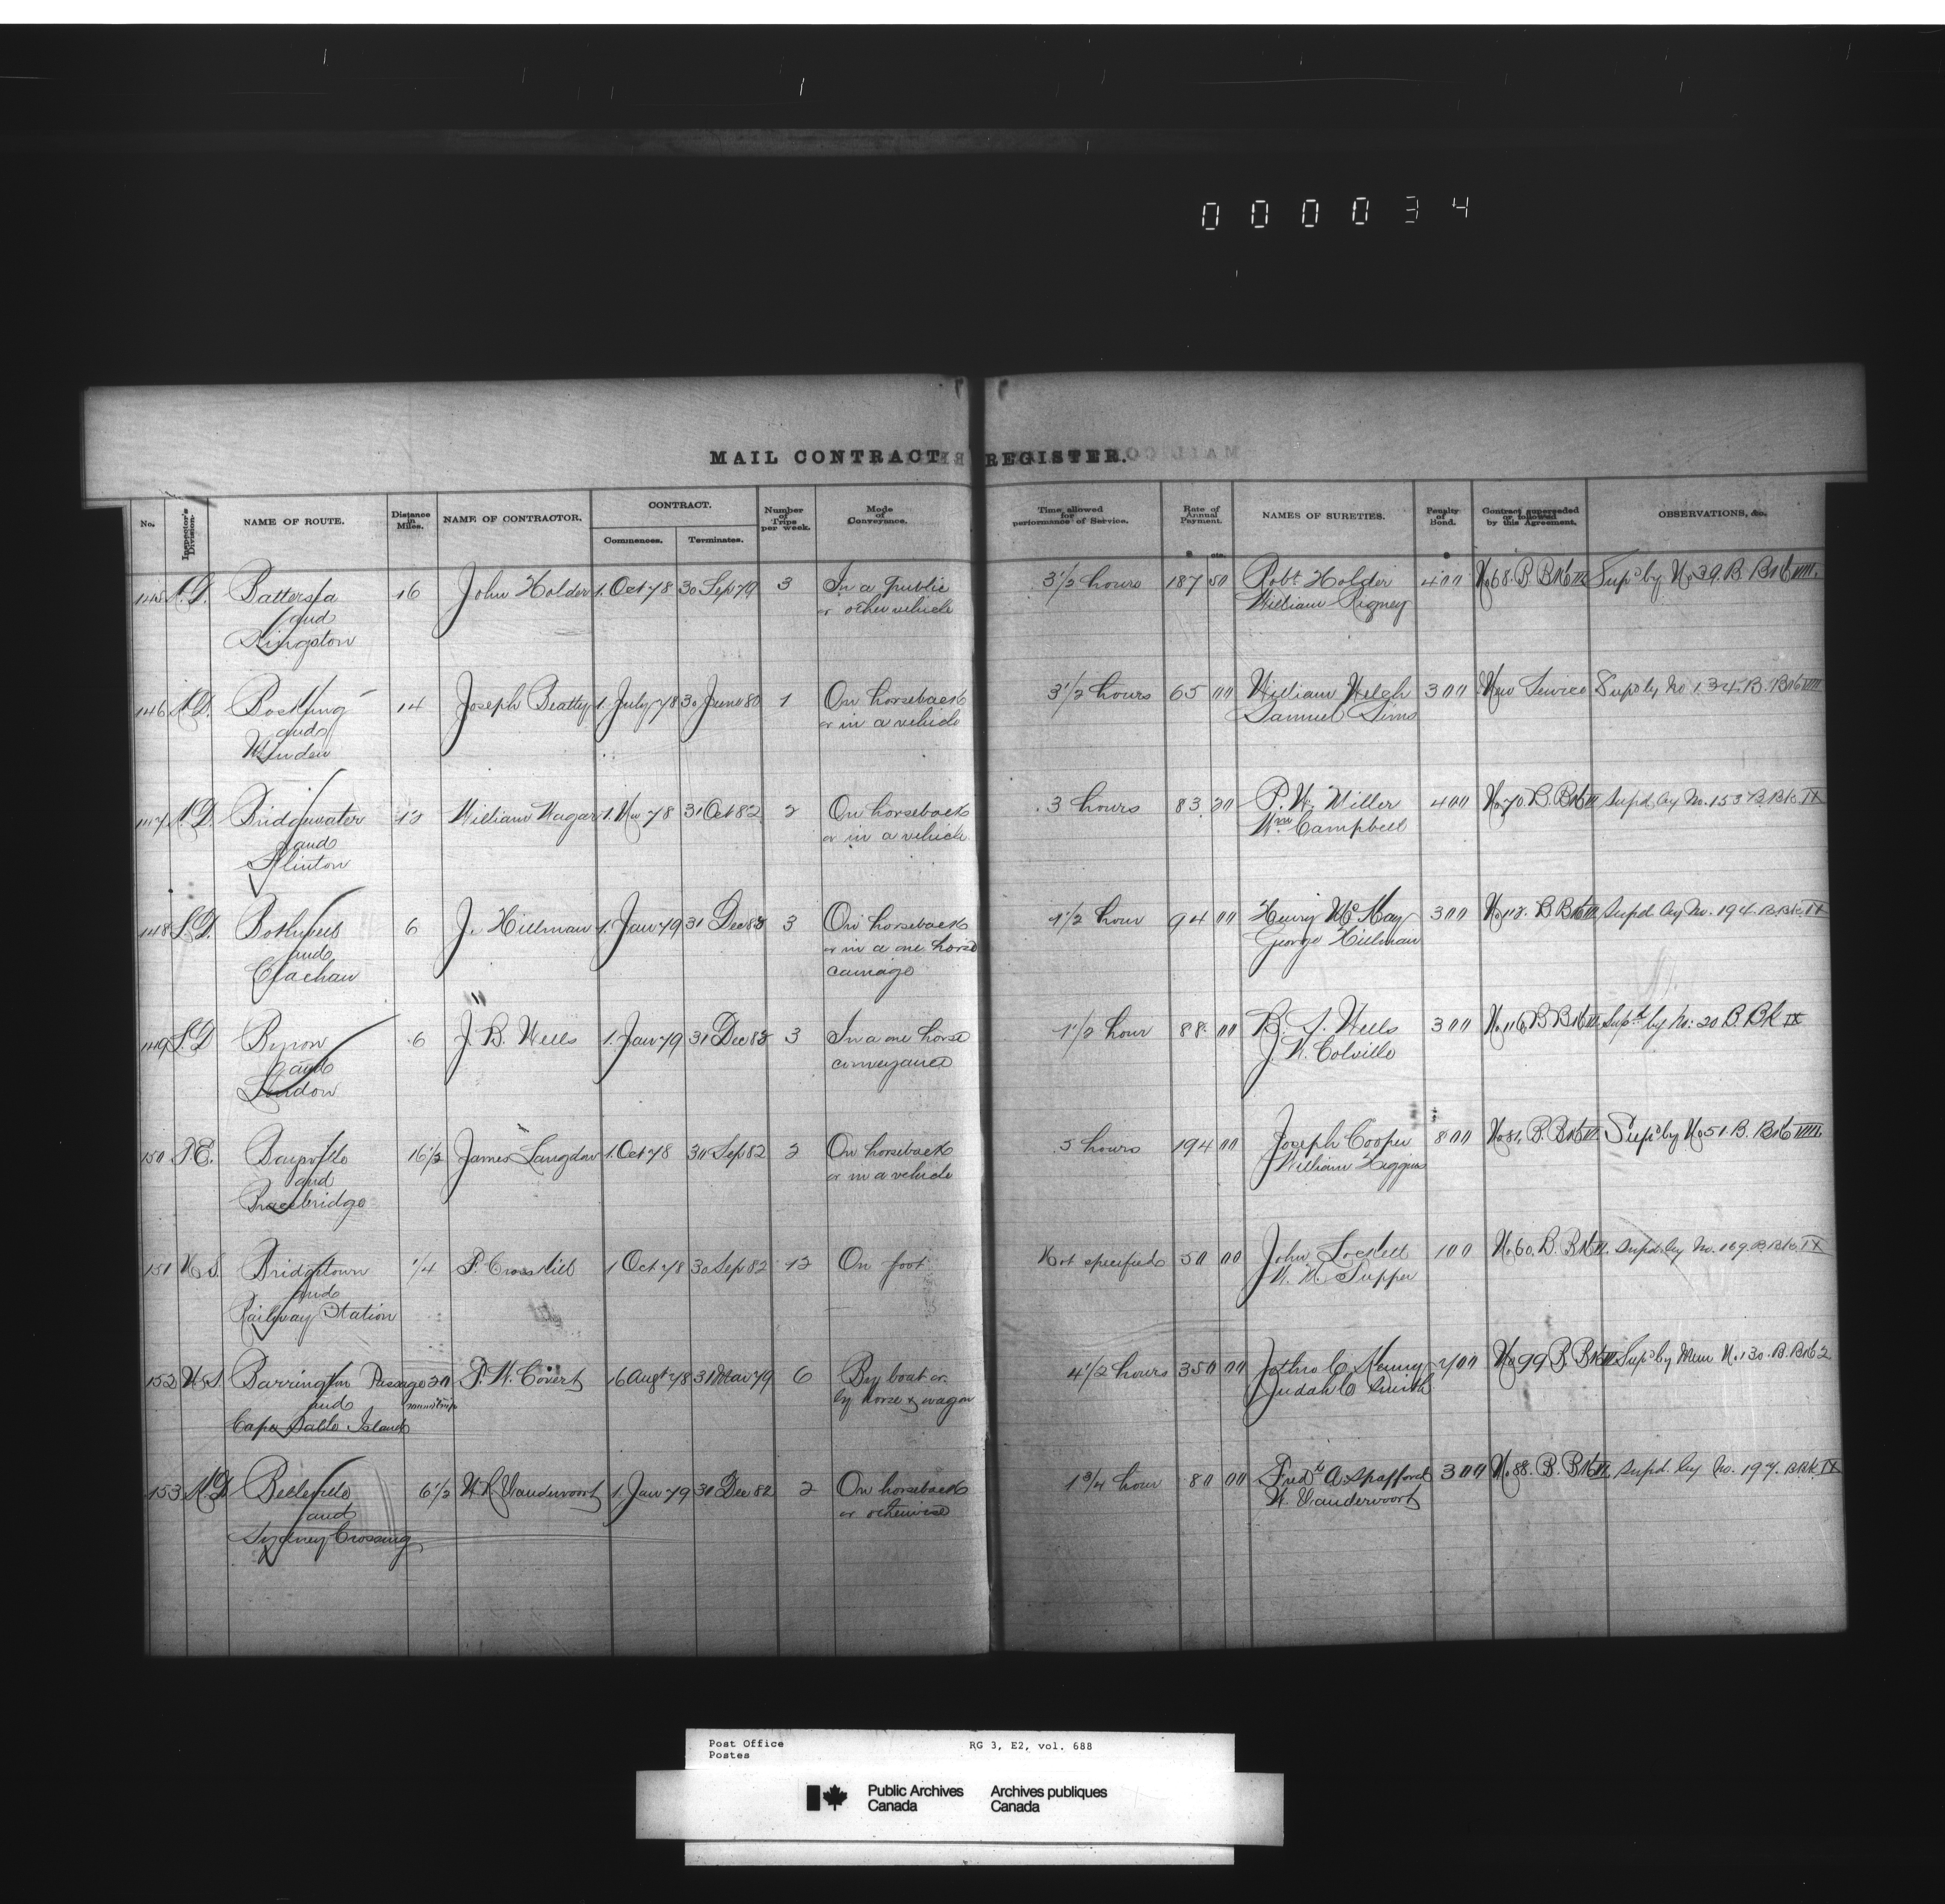 000034
MAIL CONTRACT REGISTER.
No. Inspector's Division. NAME OF ROUTE. Distance in Miles. NAME OF CONTRACTOR. CONTRACT. Commences. Terminates. Number of Trips per week. Mode of Conveyance. Time allowed for performance of Service. Rate of Annual Payment. $ cts. NAMES OF SURETIES. Penalty of Bond. $ Contract superseded or followed by this Agreement. OBSERVATIONS, &c.
145 K.D. Battersea 16 John Holder 1. Oct 78 30 Sep 79 3 In a public 3 1/2 hours 187 50 Robt Holder 400 No 68. B Bk III Supd by No 39. B. Bk VIII.
and or other vehicle William Rigney
Kingston
146 K.D. Boskung 14 Joseph Beatty 1. July 78 30 June 80 1 On horseback 3 1/2 hours 65 00 William Welch 300 New Service Supd by No 134. B. Bk VIII
and or in a vehicle Samuel Sims
Minden
147 K.D. Bridgewater 13 William Wagar 1. Nov 78 31 Oct 82 2 On horseback 3 hours 83 20 P. W. Miller 400 No 70. B. Bk Supd by No. 153 B. Bk. IX
and or in a vehicle Wm Campbell
Flinton
148 L.D. Bothwell 6 J. Hillman 1. Jan 79 31 Dec 82 3 On horseback 1 1/2 hour 94 00 Henry McKay 300 B Bk Supd by No. 194. B. Bk. IX
and or in a one horse George Hillman
Clachan carriage
149 L.D Byron 6 J. B. Wells 1. Jan 79 31 Dec 82 3 In a one horse 1 1/2 hour 88. 00 B. F. Wells 300 No 116 B Bk Supd by No: 20 B. Bk IX
and conveyance J. W. Colville
London
150 T.E. Baysville 16 1/2 James Langdon 1. Oct 78 30 Sep 82 2 On horseback 5 hours 194 00 Joseph Cooper 800 No 81. B. Bk Supd by No 51. B. Bk VIII.
and or in a vehicle William Higgins
Bracebridge
151 N.S. Bridgetown 1/4 P. Crosskill 1 Oct 78 30 Sep 82 12 On foot Not specified 50 00 John Lockett 100 No 60. B. Bk Supd. by No. 169. B. Bk. IX
and W. M. Tupper
Railway Station
152 N.S. Barrington Passage 20 T. W. Covert 16 Augt 78 31 Mar 79 6 By boat or 4 1/2 hours 350 00 Jethro C. Kenny 700 No 99 B. Bk Supd by Mem No 130. B. Bk 2
and round trip by horse & wagon Judah C Smith
Cape Sable Island
153 K.D Belleville 6 1/2 W. R. Vandervoort 1. Jan 79 31 Dec 82 2 On horseback 1 3/4 hour 80 00 Fredk A. Spafford 300 No 88. B. Bk Supd. by No. 197. B. Bk. IX
and or otherwise W. Vandervoort
Sydney Crossing
Post Office RG 3, E2, vol. 688
Postes
Public Archives Archives publiques
Canada Canada